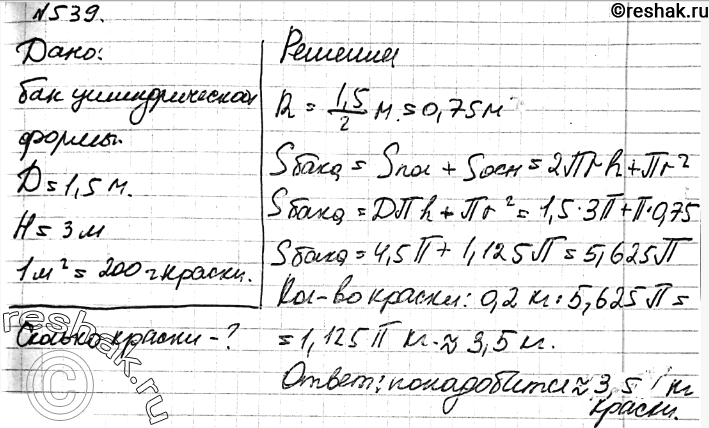 ©reshak.ru
№539.
Дано:
бак цилиндрической
формы.
D=1,5 м.
H=3 м
1 м²=200 г краски.
Сколько краски-?
Решения
R = 1,5/2 м.=0,75 м
Sбака = Sпол + Sосн = 2Пrh+Пr²
Sбака = DПh+Пr² = 1,5·3П+П·0,75
Sбака = 4,5П+1,125П=5,625П
Кол-во краски: 0,2 кг:5,625П=
=1,125П кг ≈ 3,5 кг.
Ответ: понадобится ≈ 3,5 кг
краски.
reshak.ru
©